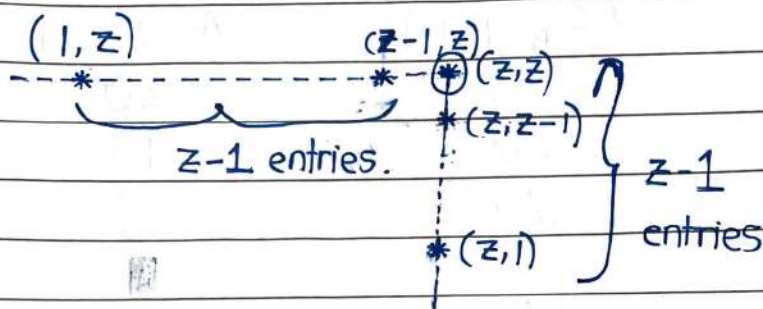 (1,z) (z-1,z)
(z,z)
(z,z-1)
z-1 entries. z-1
entries
(z,1)